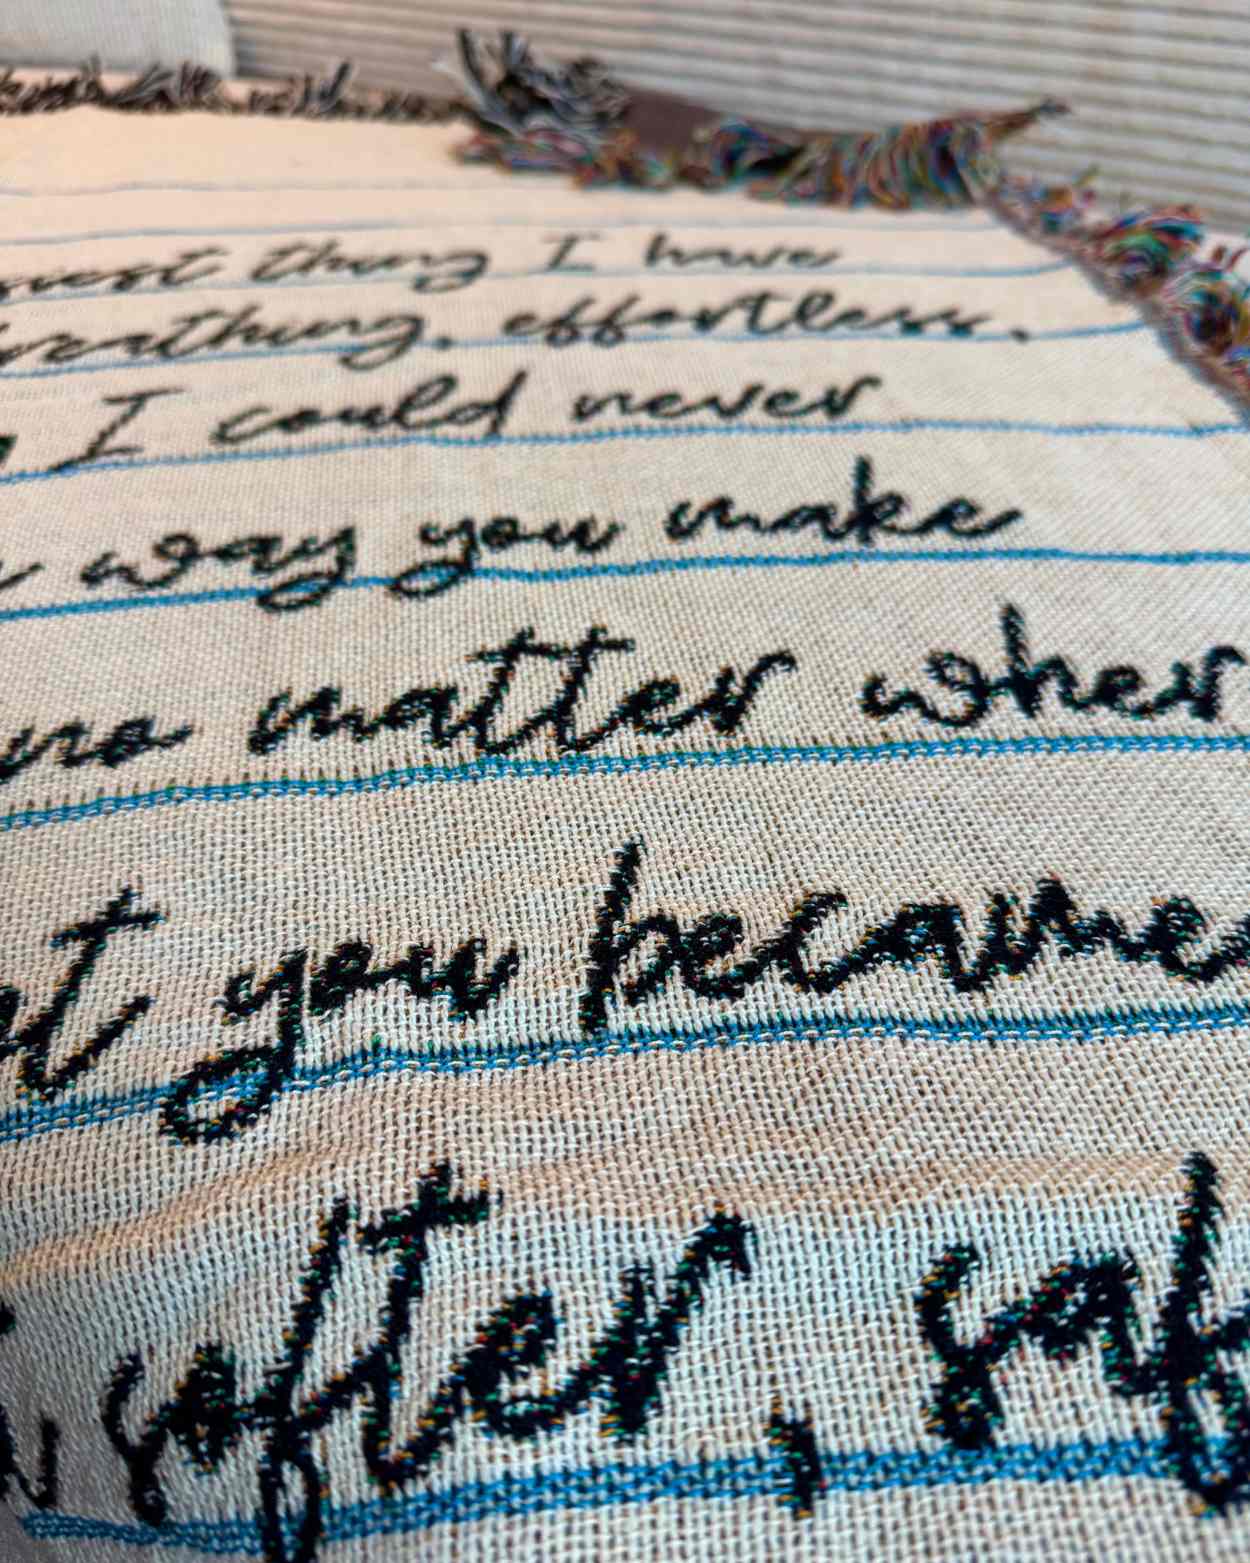 thing I have
breathing. effortless.
I could never
way you make
no matter wher
you become
softer, saf